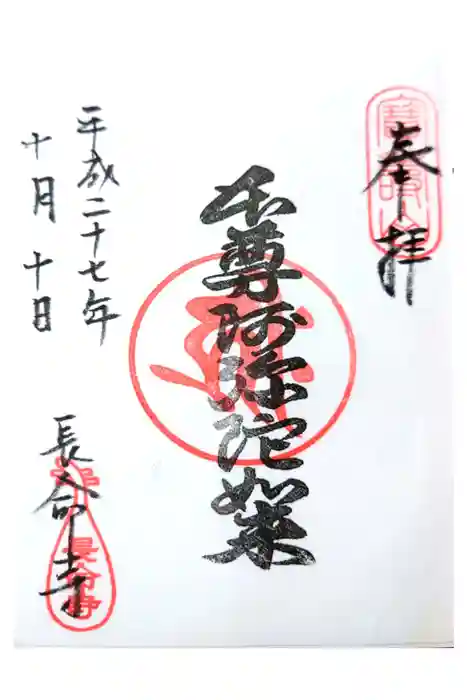 奉拝
本尊阿弥陀如来
平成二十七年
十月十日
長命寺
長命寺